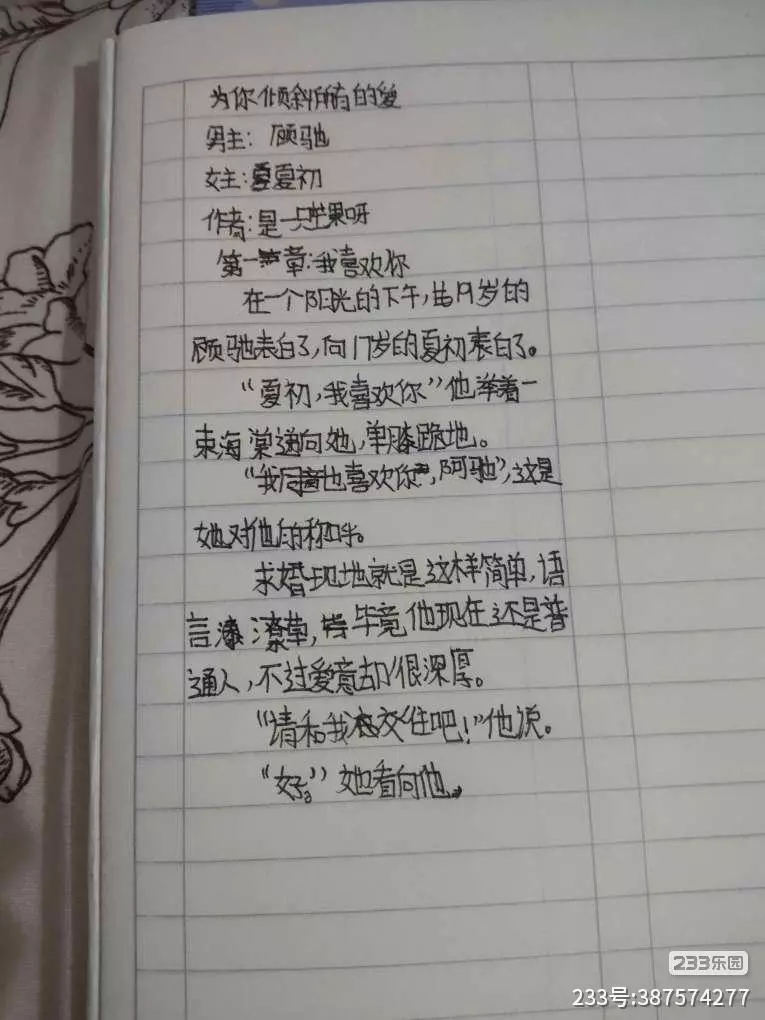 为你倾斜所有的爱
男主: 顾驰
女主:夏夏初
作者:是一只芒果呀
第一章:我喜欢你
在一个阳光的下午,19岁的
顾驰表白了,向17岁的夏初表白了。
“夏初,我喜欢你”他举着一
束海棠递向她,单膝跪地。
“我同意也喜欢你,阿驰”,这是
她对他的称呼。
求婚现地就是这样简单,语
言潦草,毕竟他现在还是普
通人,不过爱意却很深厚。
“请和我交往吧!”他说。
“好。”她看向他。
233乐园
233号:387574277